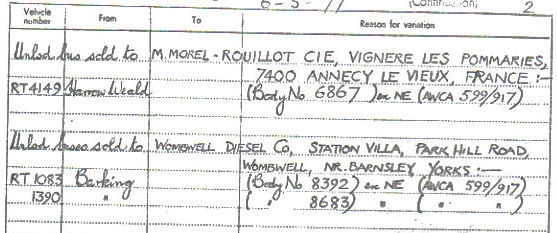 6-5-77 (Continuation) 2
Vehicle number From To Reason for variation
Unlsd bus sold to M. MOREL - ROUILLOT CIE, VIGNERE LES POMMARIES,
7400 ANNECY LE VIEUX, FRANCE :-
RT4149 Harrow Weald (Body No 6867) ex NE (AWCA 599/917)
Unlsd buses sold to WOMBWELL DIESEL Co, STATION VILLA, PARK HILL ROAD,
WOMBWELL, NR. BARNSLEY, YORKS :—
RT 1083 Barking (Body No 8392) ex NE (AWCA 599/917)
1390 " ( " 8683) " ( " " )